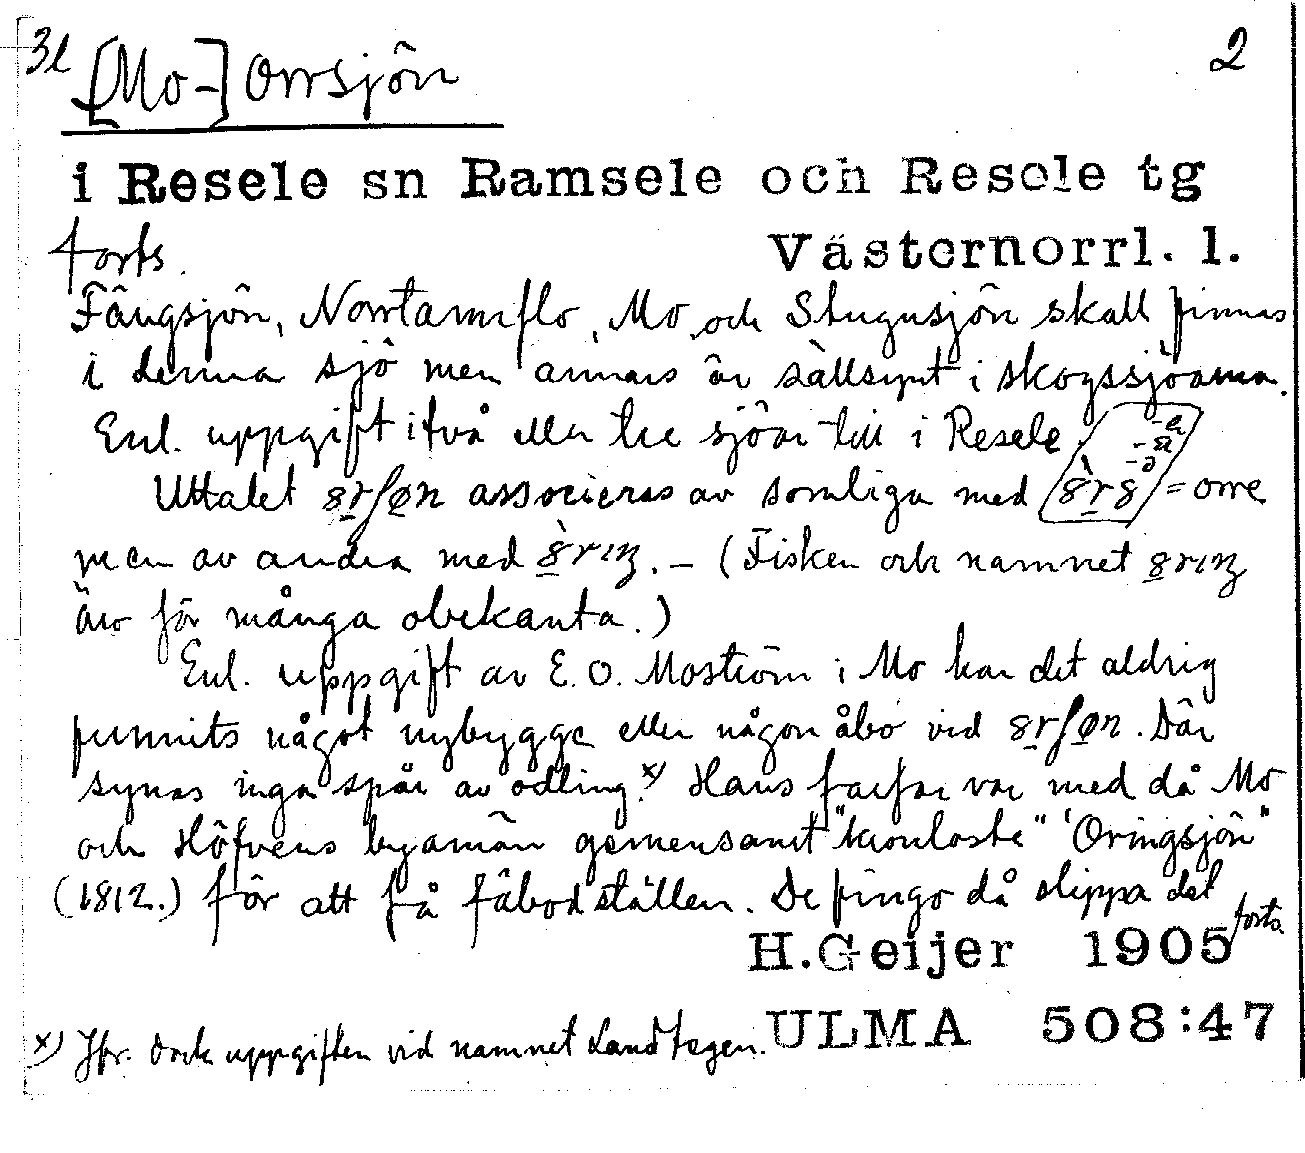 3l [Mo-] Orrsjön 2
i Resele sn Ramsele och Resele tg
forts. Västernorrl. l.
Fängsjön, Norrtannflo, Mo och Stugusjön skall finnas
i denna sjö men annars är sällsynt i skogssjöarna.
Enl. uppgift i två eller tre sjöar till i Resele.
Uttalet associeras av somliga med = orre
men av andra med . – (Fisken och namnet
äro för många obekanta.)
Enl. uppgift av E. O. Moström i Mo har det aldrig
funnits något nybygge eller någon åbo vid . Där
synas inga spår av odling.x) Hans farfar var med då Mo
och Höfvens byamän gemensamt "kronlöste" "Oringsjön"
(1812.) för att få fäbodställen. De fingo då slippa det
forts.
H. Geijer 1905
ULMA 508:47
x) Jfr. dock uppgiften vid namnet Landtegen.